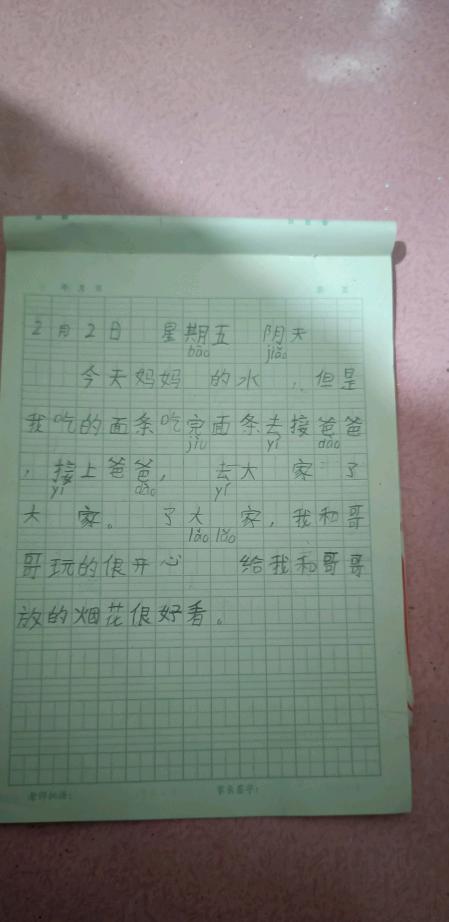 年 月 日
2月2日 星期五 阴天
bāo jiǎo
今天妈妈 的水 ，但是
我吃的面条吃完面条去接爸爸
jiù yí dào
，接上爸爸， 去大 家 了
yí dào yí
大 家。 了大 家，我和哥
lǎo lǎo
哥玩的很开心 给我和哥哥
放的烟花很好看。
老师批语： 家长签字：